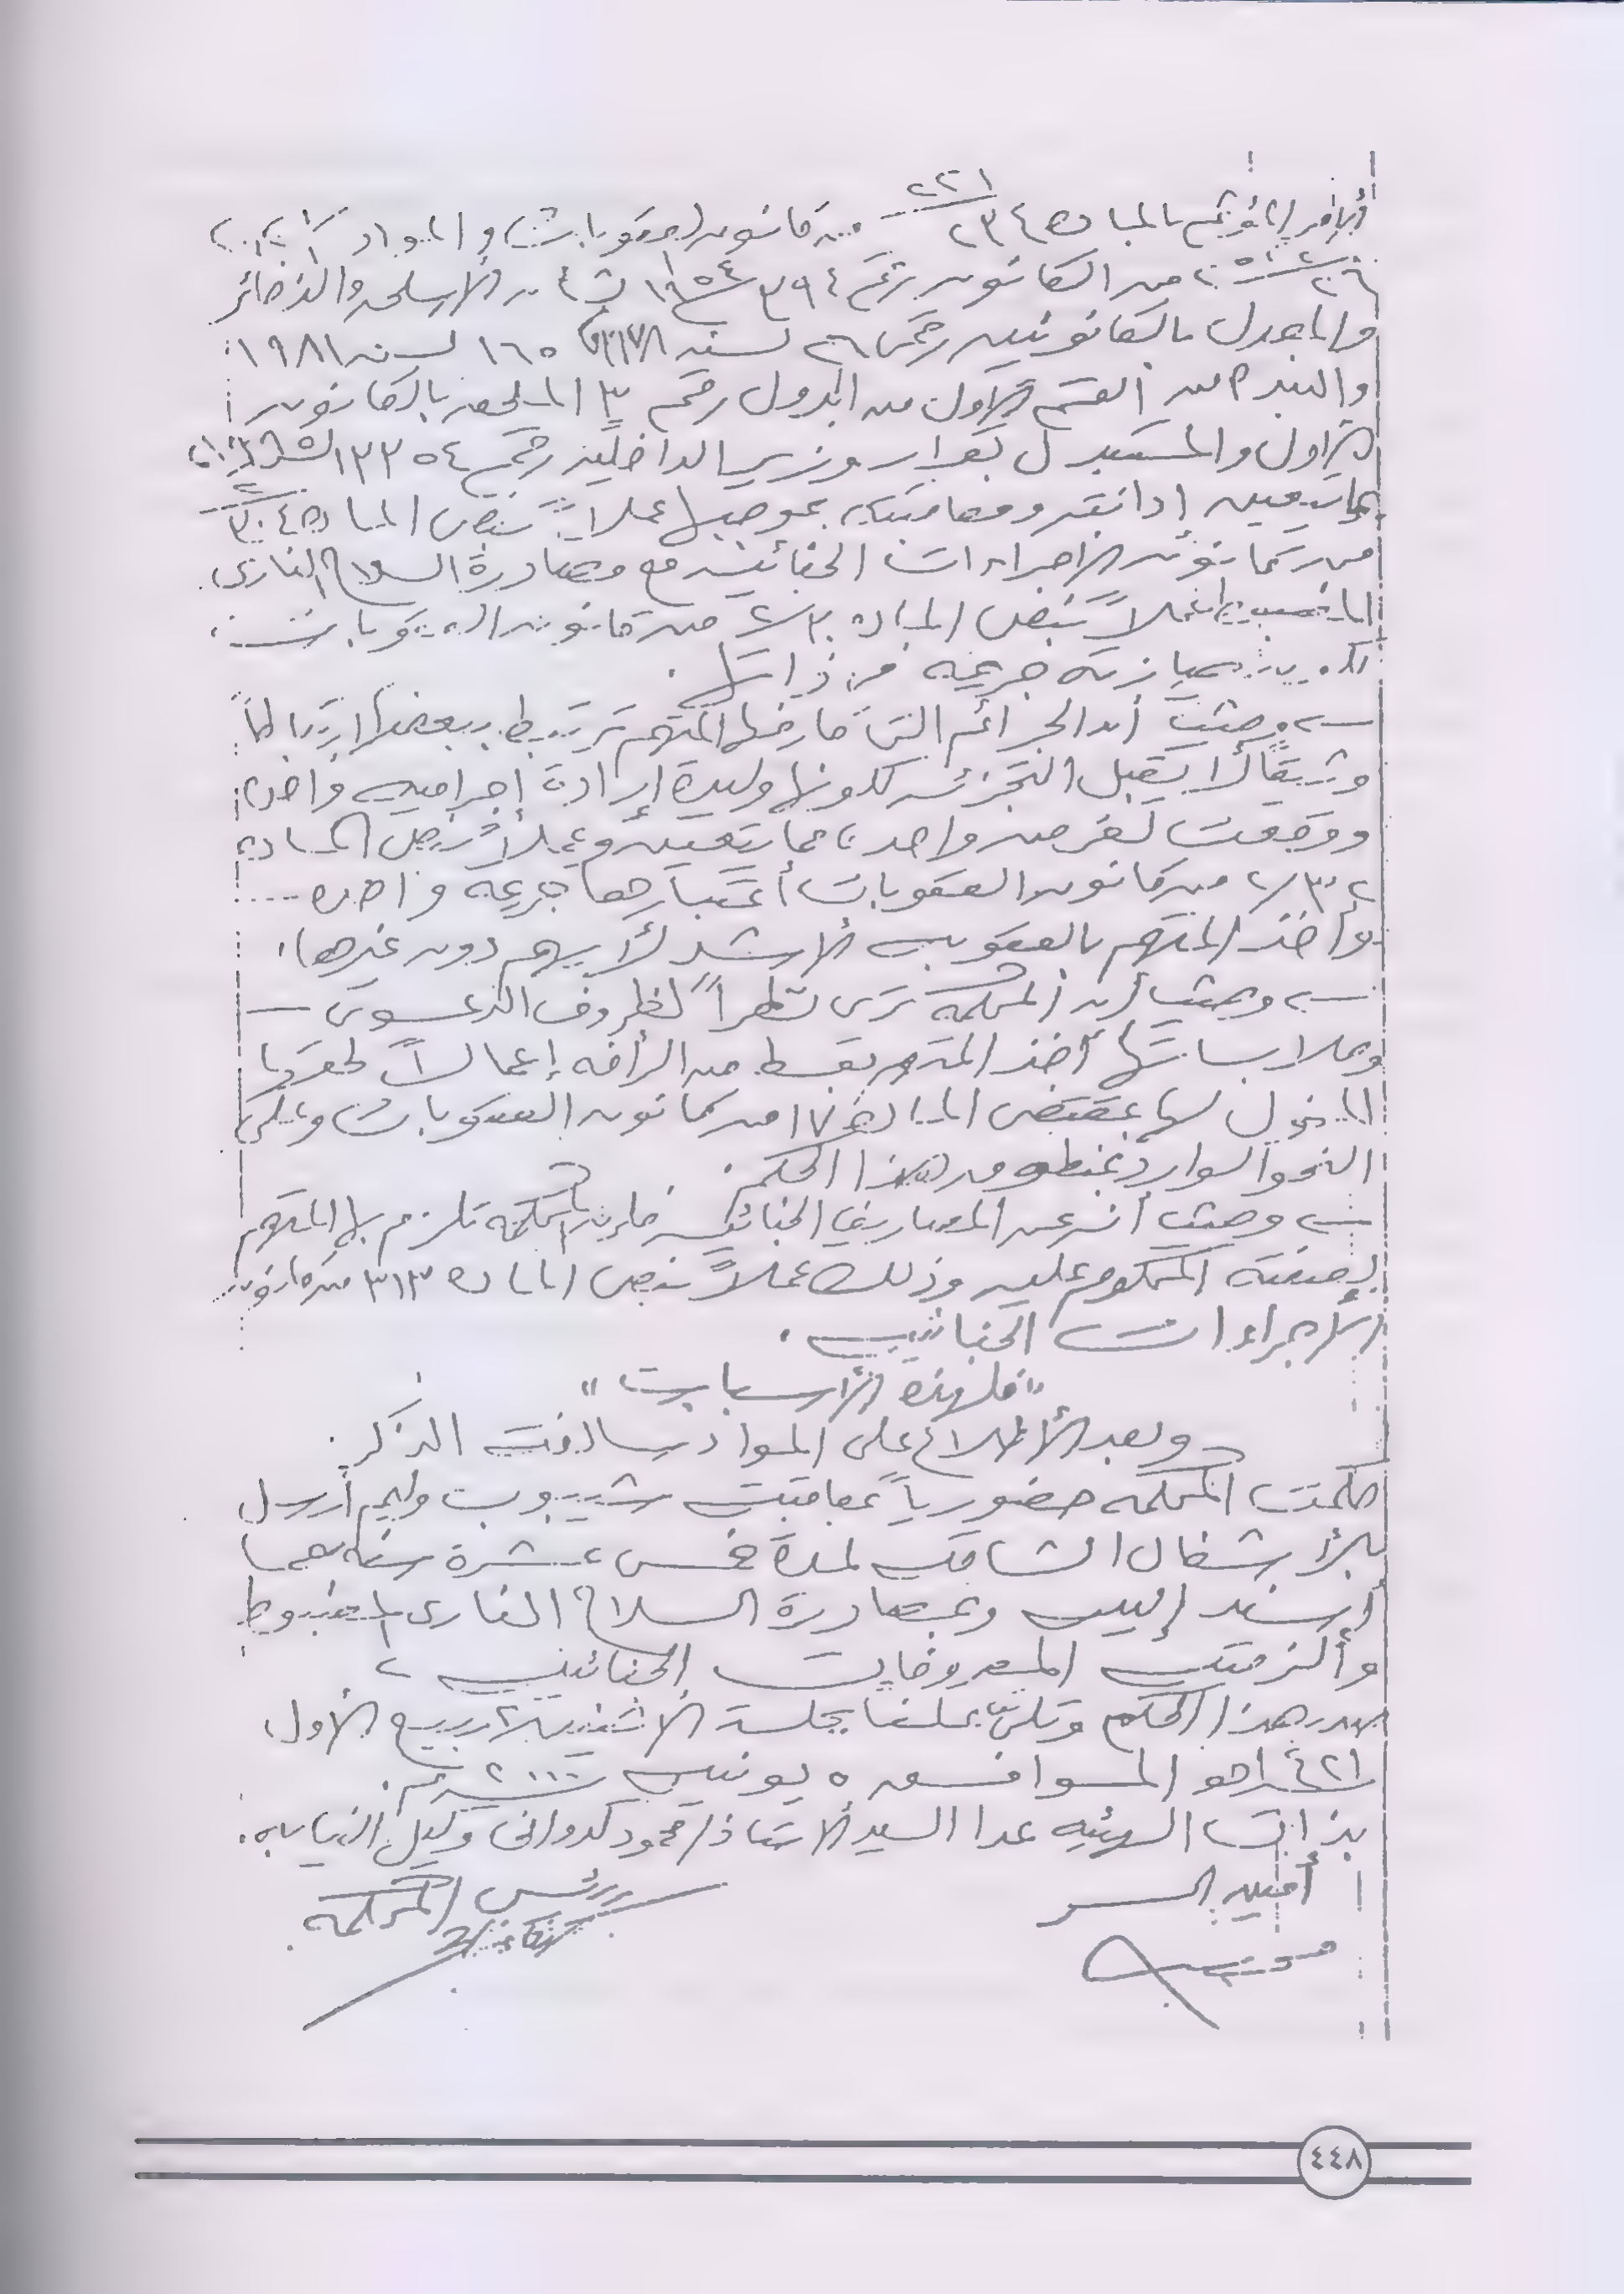 الأمر المؤثم بالمادة ٢٣٤ / ١ ، ٢ من قانون العقوبات والمواد ١ ،
من القانون رقم ٣٩٤ لسنة ١٩٥٤ الأسلحة والذخائر
والمعدل بالقانونين رقمى ٢٦ لسنة ١٩٧٨ ، ١٦٥ لسنه ١٩٨١
والبند من القسم الأول من الجدول رقم ٣ الملحق بالقانون
الأول والمستبدل بقرار وزير الداخلية رقم ١٣٣٥٤ لسنة
مما يتعين إدانته ومعاقبته بموجبها عملاً بنص المادة ٣٠٤ / ٢
من قانون الإجراءات الجنائية مع مصادرة السلاح النارى
المضبوط عملاً بنص المادة ٣٠ / ٢ من قانون العقوبات
لكون حيازته جريمه فى ذاتها .
وحيث أن الجرائم التى قارفها المتهم ترتبط ببعضها ارتباطاً
وثيقاً لا يقبل التجزئه لكونها وليدة إرادة إجراميه واحده
ووقعت لغرض واحد مما يتعين وعملاً بنص الماده
٣٢ / ٢ من قانون العقوبات أعتبارها جريمه واحده ....
وأخذ المتهم بالعقوبه الأشد لأيهم دون غيرها .
وحيث أن المحكمة ترى نظراً لظروف الدعوى —
وملابساتها أخذ المتهم بقسط من الرأفه إعمالاً لحقها
المخول لها بمقتضى المادة ١٧ من قانون العقوبات وعلى
النحو الوارد بمنطوق هذا الحكم .
وحيث أنه عن المصاريف الجنائيه فإن المحكمة تلزم بها المتهم
بصفته المحكوم عليه وذلك عملاً بنص المادة ٣١٣ من قانون
الإجراءات الجنائيه .
" فلهذه الأسباب "
وبعد الأطلاع على المواد سالفت الذكر .
حكمت المحكمه حضورياً بمعاقبة شيبوب وليم أرسل
بالأشغال الشاقه لمدة خمس عشرة سنه عما
أسند إليه وبمصادرة السلاح النارى المضبوط
وألزمته المصروفات الجنائيه
صدر هذا الحكم وتلى علنا بجلسة الأثنين ٢ ربيع الأول
١٤٢١ هـ الموافق ٥ يونيه ٢٠٠٠ م .
بذات الهيئه عدا السيد الأستاذ / محمود كدوانى وكيل النيابه .
أمين السر
رئيس المحكمه
٤٤٨